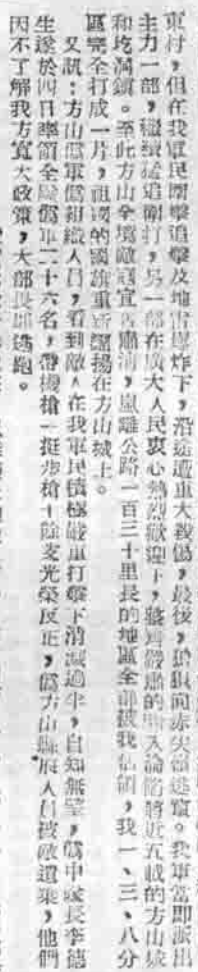 東村，但在我軍民圍擊追擊及地雷爆炸下，沿途遭重大殺傷，最後，狼狽向赤尖嶺逃竄。我軍當即派出
主力一部，繼續追剿打，另一部在廣大人民衷心熱烈歡迎下，整齊嚴肅的開入淪陷將近五載的方山城
和圪洞鎮。至此方山全境敵寇宣告肅清，嵐離公路一百三十里長的地區全部被我佔領，我一、三、八分
區完全打成一片，祖國的國旗重新飄揚在方山城上。
又訊：方山僞軍僞組織人員，看到敵人在我軍民積極嚴重打擊下消滅過半，自知無望，僞中隊長李德
生遂於四日率領全隊僞軍二十六名，帶機槍一挺步槍十餘支光榮反正，僞方山縣府人員被敵遺棄，他們
因不了解我方寬大政策，大部長逃跑。